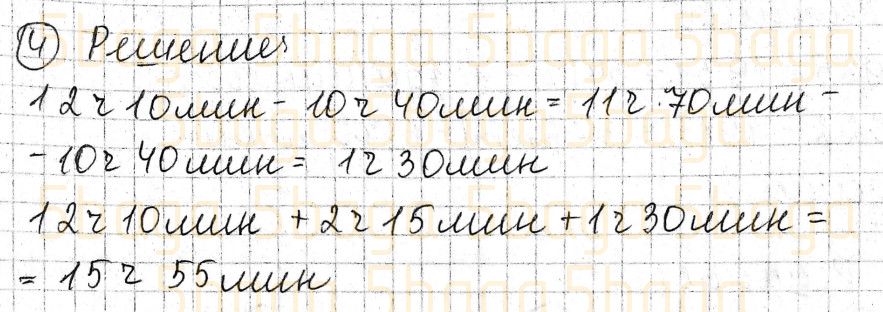 4 Решение:
12 ч 10 мин - 10 ч 40 мин = 11 ч 70 мин -
- 10 ч 40 мин = 1 ч 30 мин
12 ч 10 мин + 2 ч 15 мин + 1 ч 30 мин =
= 15 ч 55 мин